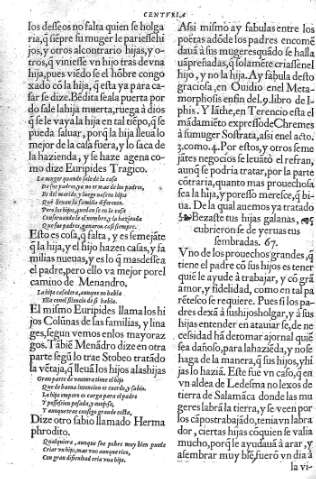 CENTVRIA
los desseos no falta quien se holga
ria, q̃ siẽpre su muger le pariesse hi
jos, y otros al contrario hijas, y o-
tros, q̃ viniesse vn hijo tras de vna
hija, pues viẽdo se el hõbre congo
xado cõ la hija, q̃ esta ya para ca-
sar se dize. Bẽdita sea la puerta por
do sale la hija muerta, ruega à dios
q̃ se le vaya la hija en tal tiẽpo, q̃ se
pueda saluar, porq̃ la hija lleua lo
mejor de la casa fuera, y lo saca de
la hazienda, y se haze agena co-
mo dize Euripides Tragico.
La muger quando sale de la casa
De sus padres, ya no es mas de los padres,
Que fueron ganaron casi siempre.
Esto es cosa, q̃ falta, y es semejãte
q̃ la hija, y el hijo hazen casas, y fa
milias nueuas, y es lo q̃ mas dessea
el padre, pero ello va mejor por el
camino de Menandro.
El mismo Euripides llama los hi
jos Colũnas de las familias, y lina
ges, segun vemos en los mayoraz
gos. Tãbiẽ Menãdro dize en otra
parte segũ lo trae Stobeo tratãdo
la vẽtaja, q̃ lleuã los hijos a las hijas
Gran parte de ventura tiene el hijo
Que de buena inuencion es cuerdo, y sabio.
La hija empero es carga para el padre
Y possession pesada, y enojosa,
Y aunque trae consigo grande costa,
Dize otro sabio llamado Herma
phrodito.
Qualquiera, aunque sea pobre muy bien puede
Criar vn hijo, mas vno aunque rico,
Con gran dificultad cria vna hija.
Assi mismo ay fabulas entre los
poetas adõde los padres encomẽ
dauã à sus mugeres quãdo se halla
uã preñadas, q̃ solamẽte criassen el
hijo, y no la hija. Ay fabula desto
graciosa, en Ouidio en el Meta-
morphosis en fin del .9. libro de I-
phis. Y Iãthe, en Terencio esta el
mãdamiẽto expresso de Chremes
à su muger Sostrata, assi en el acto.
3. como. 4. Por estos, y otros seme
jãtes negocios se leuãtò el refran,
aunq̃ se podria tratar, por la parte
cõtraria, quanto mas prouechosa
sea la hija, y por esso meresce, q̃ bi-
ua. De la qual auemos ya tratado
Bezaste tus hijas galanas,
cubrieron se de yeruas tus
sembradas. 67.
Vno de los prouechos grandes, q̃
tiene el padre cõ sus hijos es tener
quiẽ le ayude à trabajar, y cõ grã
amor, y fidelidad, como en tal pa
rẽtesco se requiere. Pues si los pa-
dres dexã à sus hijos holgar, y à sus
hijas entender en atauiarse, de ne
cessidad hà de tomar ajornal quiẽ
sea dañoso, para la haziẽda, y no se
haga de la manera, q̃ sus hijos, y hi
jas lo haziã. Este fue vn caso, q̃ en
vn aldea de Ledesma no lexos de
tierra de Salamãca donde las mu
geres labrã la tierra, y se veen por
los cãpos trabajãdo, tenia vn labra
dor, ciertas hijas con quien se valia
mucho, porq̃ le ayudauã à arar, y
à sembrar muy biẽ, fuerõ vn dia à
la vi-